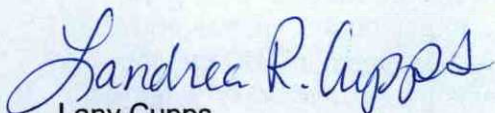 Landrea R. Cupps
Lany Cupps